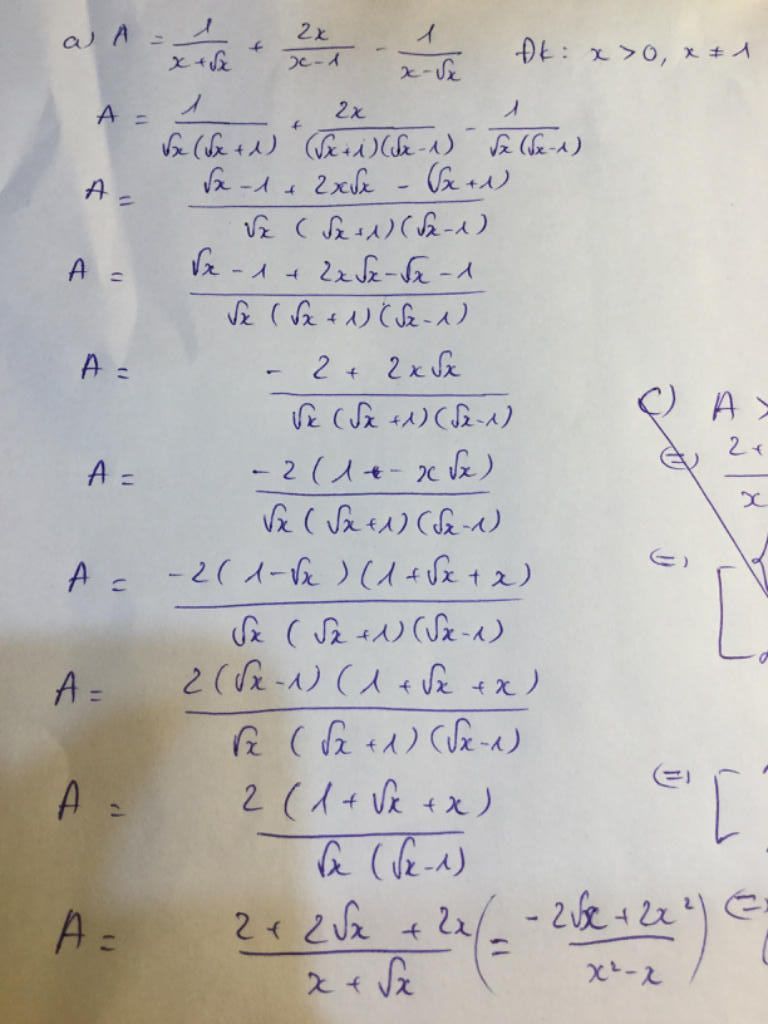 a) A = \frac{1}{x+\sqrt{x}} + \frac{2x}{x-1} - \frac{1}{x-\sqrt{x}} Đk: x > 0, x ≠ 1
A = \frac{1}{\sqrt{x}(\sqrt{x}+1)} + \frac{2x}{(\sqrt{x}+1)(\sqrt{x}-1)} - \frac{1}{\sqrt{x}(\sqrt{x}-1)}
A = \frac{\sqrt{x}-1+2x\sqrt{x}-(\sqrt{x}+1)}{\sqrt{x}(\sqrt{x}+1)(\sqrt{x}-1)}
A = \frac{\sqrt{x}-1+2x\sqrt{x}-\sqrt{x}-1}{\sqrt{x}(\sqrt{x}+1)(\sqrt{x}-1)}
A = \frac{-2+2x\sqrt{x}}{\sqrt{x}(\sqrt{x}+1)(\sqrt{x}-1)}
A = \frac{-2(1-x\sqrt{x})}{\sqrt{x}(\sqrt{x}+1)(\sqrt{x}-1)}
A = \frac{-2(1-\sqrt{x})(1+\sqrt{x}+x)}{\sqrt{x}(\sqrt{x}+1)(\sqrt{x}-1)}
A = \frac{2(\sqrt{x}-1)(1+\sqrt{x}+x)}{\sqrt{x}(\sqrt{x}+1)(\sqrt{x}-1)}
A = \frac{2(1+\sqrt{x}+x)}{\sqrt{x}(\sqrt{x}-1)}
A = \frac{2+2\sqrt{x}+2x}{x+\sqrt{x}} \left(= \frac{-2\sqrt{x}+2x^2}{x^2-x}\right)
C) A >
(=)
(=)
(=)
(=)